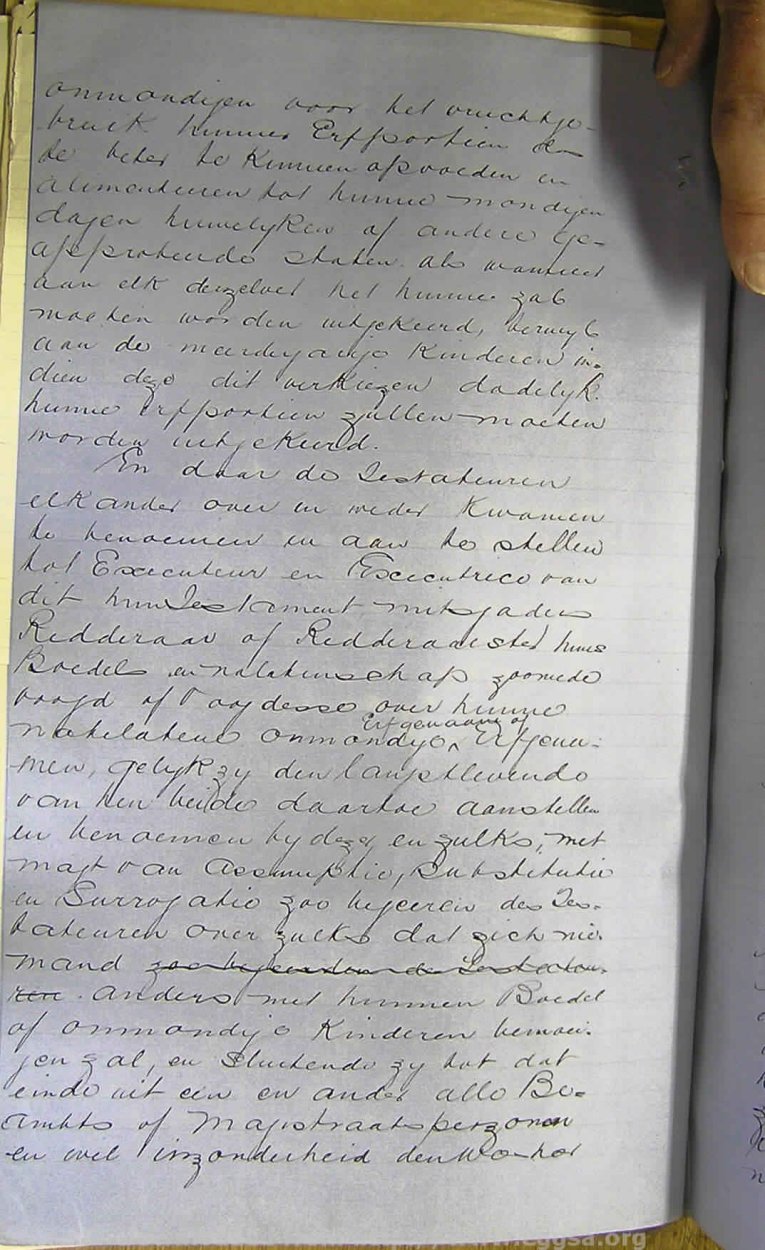 onmondigen voor het vruchtge-
bruik hunner Erfportien des
te beter te kunnen opvoeden en
alimenteeren tot hunne mondigen
dagen huwelyken of andere ge-
approbeerde staten. als wanneer
aan elk derzelver het hunne zal
moeten worden uitgekeerd, terwyl
aan de meerderjarige Kinderen in-
dien deze dit verkiezen dadelyk
hunne Erfportien zullen moeten
worden uitgekeerd.
En daar de Testateuren
elkander over en weder kwamen
te benoemen en aan te stellen
tot Executeur en Executrice van
dit hun Testament mitsgaders
Redderaar of Redderaarster huns
Boedels en nalatenschap zoomede
voogd of Voogdesse over hunne
Erfgenaam of
natelatene onmondige Erfgena-
men, gelyk zy den langstlevende
van hen beide daartoe aanstellen
en benoemen by deze, en zulks, met
magt van assumptie, Substitutie
en Surrogatie zoo begeeren des Tes-
tateuren over zulks dat zich nie-
mand zoo begeeren de Testateu-
ren. anders met hunnen Boedel
of onmondige Kinderen bemoei-
jen zal, en Sluitende zy tot dat
einde uit een en ander alle Be-
ambts of Magistraatsperzonen
en wel inzonderheid den
eggsa.org